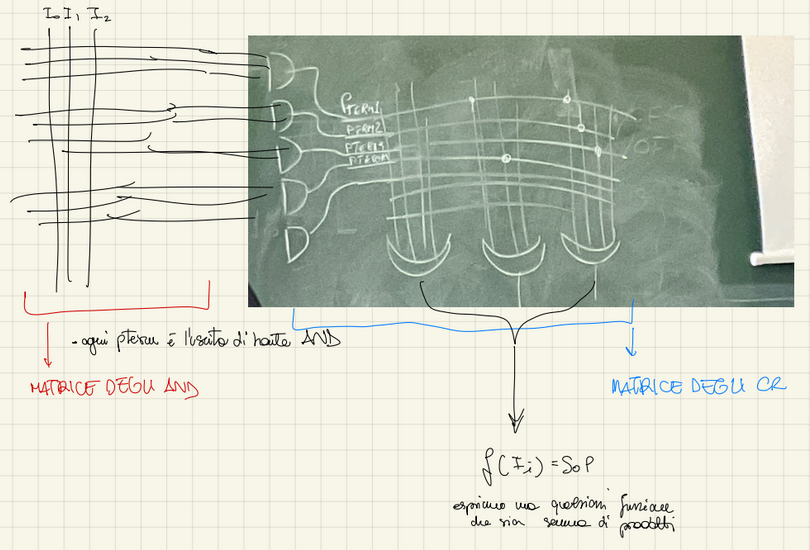 I₀ I₁ I₂
PTERM1
PTERM2
PTERM3
PTERM4
- ogni pterm è l'uscita di AND
MATRICE DEGLI AND
MATRICE DEGLI OR
f(Ii) = SoP
esprimo una qualsiasi funzione
che sia somma di prodotti